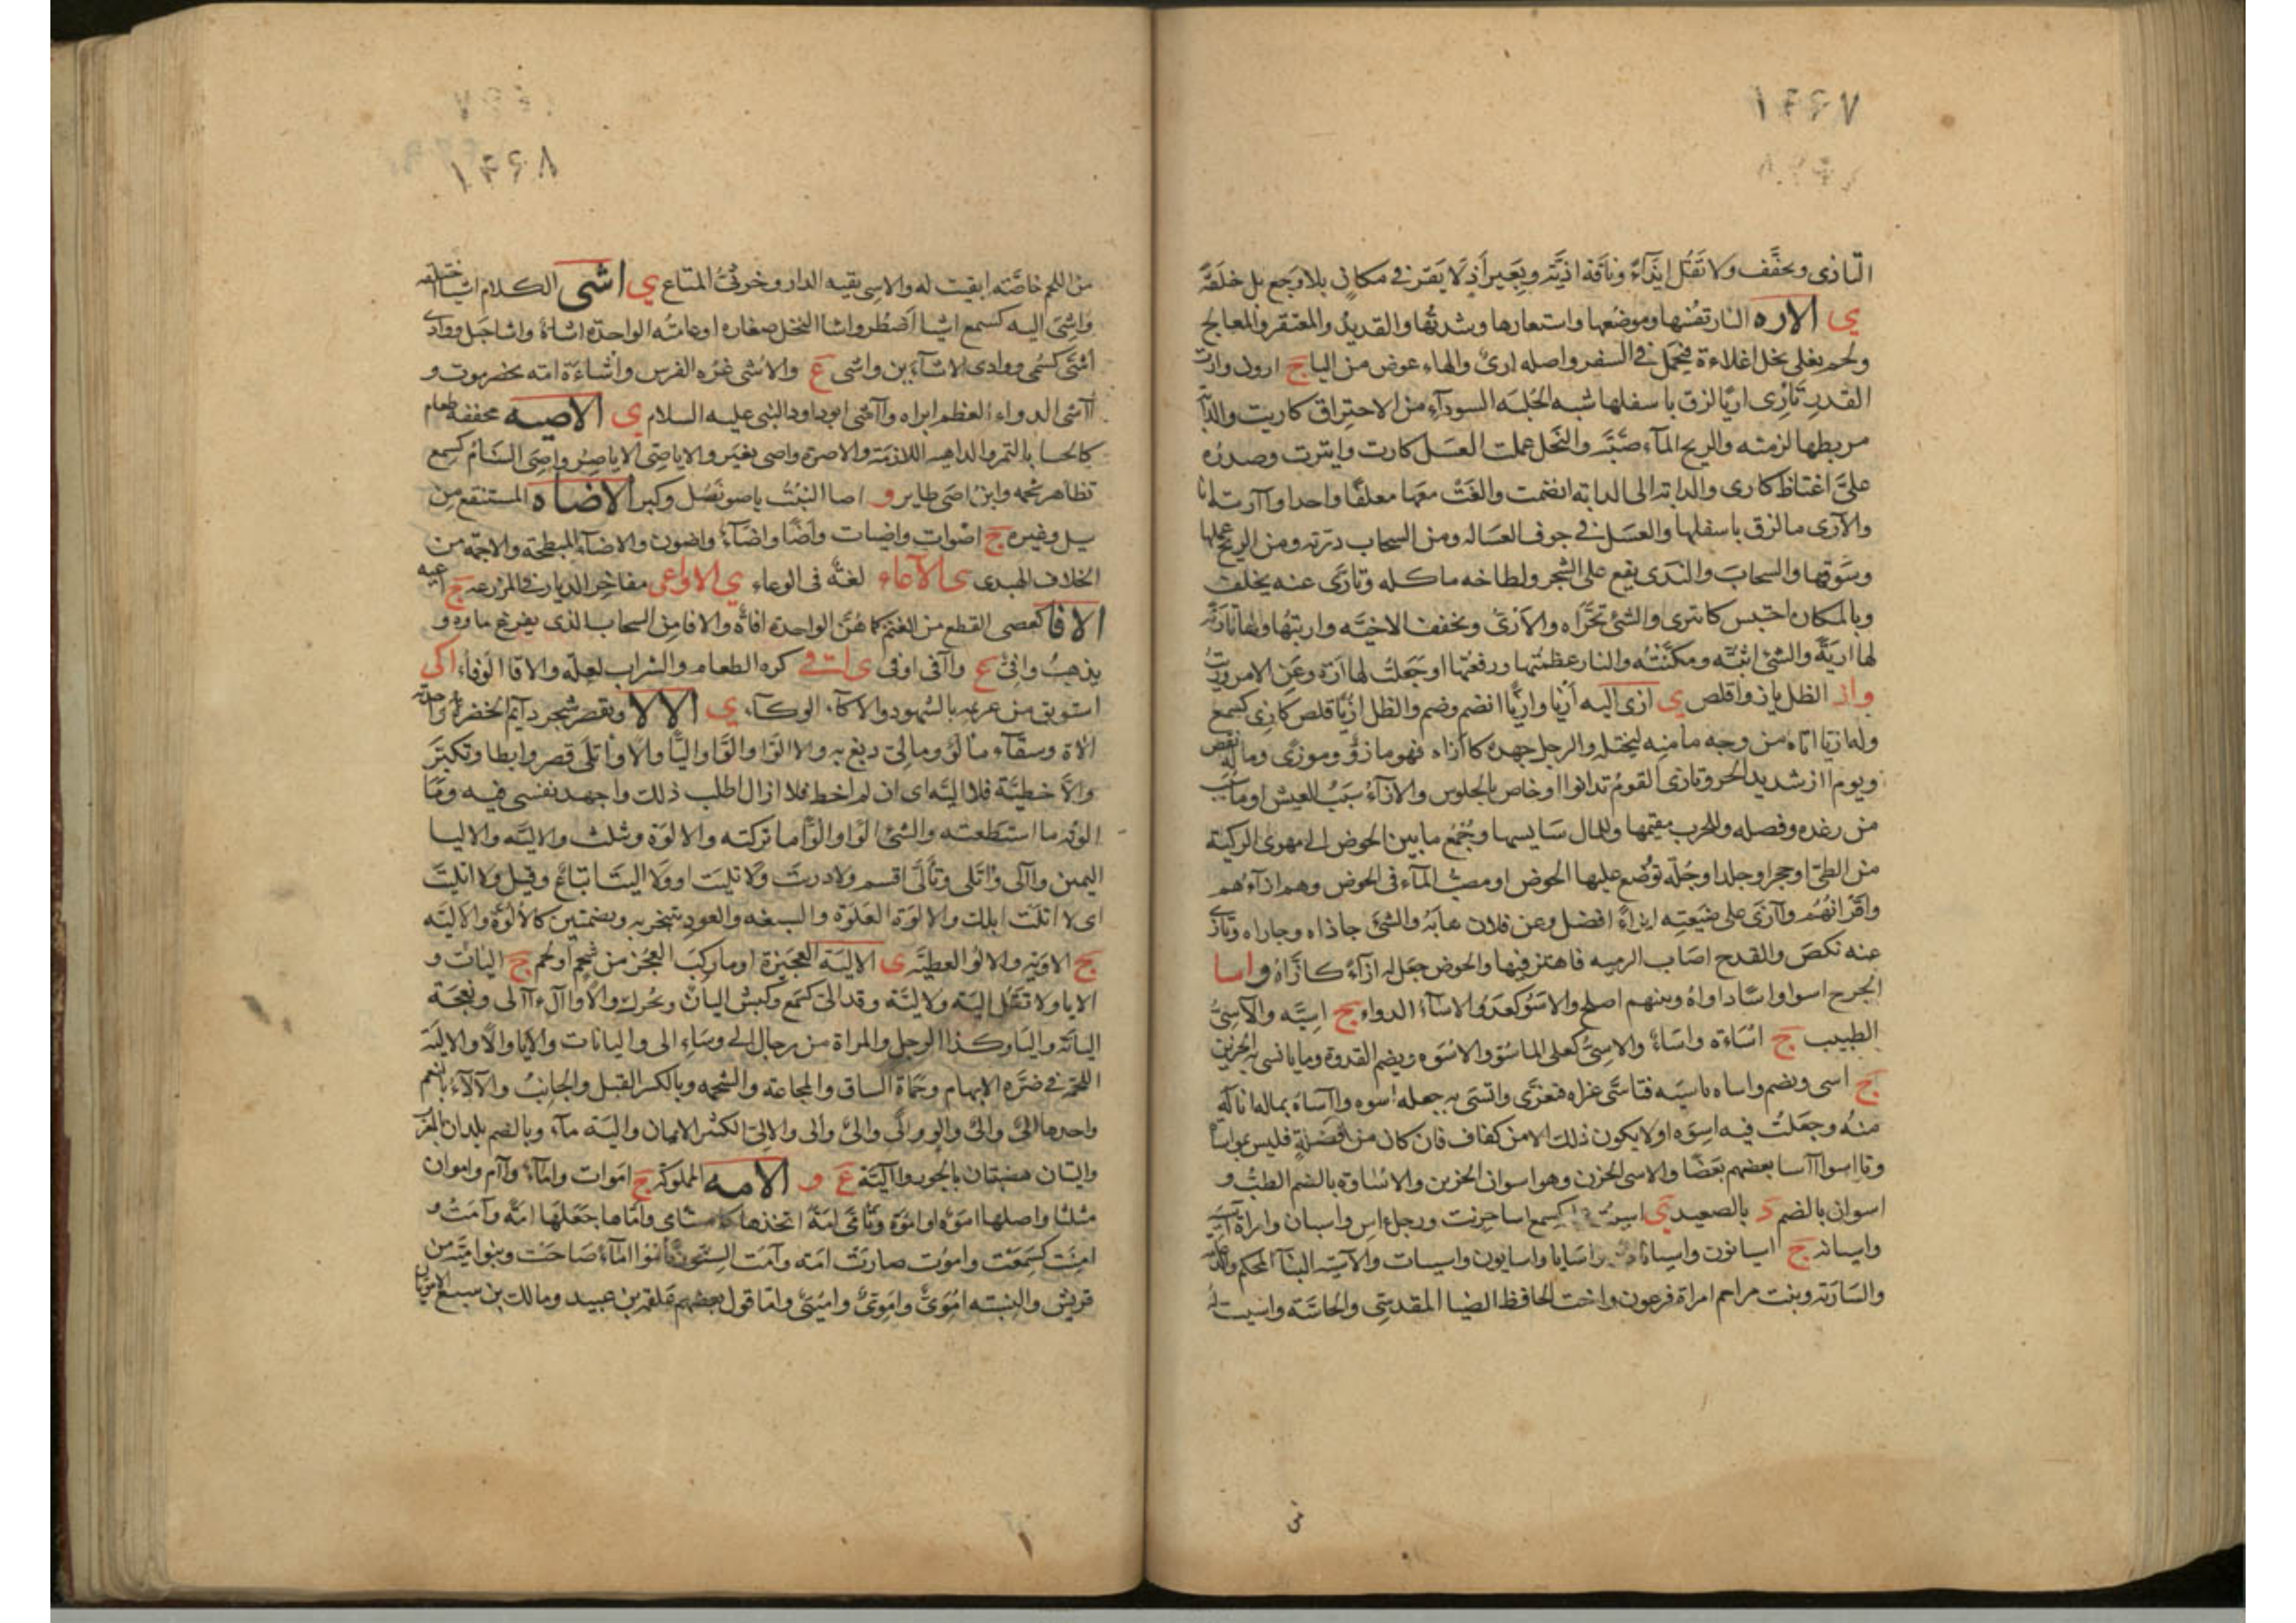 ۱۴۶۷
التاذى ويخفف ولا تقل ايذاء وناقة اذية وبعير اذ لا يقر فى مكان بلا وجع بل خلقة
ى الاره النار تفسها وموضعها واستعارها وشدتها والقديد والمعتقر والمعالج
ولحم يغلى بخل اغلاءة فيحمل فى السفر واصله ارى والهاء عوض من اليا ج ارون وارت
القدر تارى اريا لزق باسفلها شبه الجلبه السوداء من الاحتراق كاريت والدابة
مربطها لزمته والريح الماء صبته والنحل عملت العسل كارت وايترت وصدره
على اغتاظ كارى والدابه الى الدابه انضمت والفت معها معلفا واحدا وآارتها انا
والآرى ما لزق باسفلها والعسل فى جوف العساله ومن السحاب درته ومن الريح عملها
وسوقها والسحاب والندى يقع على الشجر ولطاخه ماكله وتارى عنه يخلف
وبالمكان احتبس كايترى والشئ تحراه والارى ويخفف الاخيه واريتها ولها تارية
لها ارية والشئ اثبته ومكنته والنار عظمتها ورفعتها او جعلت لها ارة وعن الامر وريت
و از الظل يازو اقلص ى ازى اليه ازيا وازيا انضم وضم والظل ازيا قلص كازى كسمع
وله ازيا اتاه من وجه مامنه ليختله والرجل جهده كاازاه فهو مازو وموزى وماله نقص
ويوم ااز شديد الحر وتازى القوم تدانوا او خاص بالجلوس والازاء سبب العيش او ماسبب
من رغده وفضله وللحرب مقيمها وللمال سايسها وجمع ما بين الحوض الى مهوى الركية
من الطى او حجر او جلد او جلة توضع عليها الحوض او مصب الماء فى الحوض وهم ازاءهم
واقرانهم وآازى على ضيعته ايزاء افضل وعن فلان هابه والشئ حاذاه وجاراه وتازى
عنه نكص والقدح اصاب الرميه فاهتز فيها والحوض جعل له ازاء كازاه و اسا
الجرح اسوا واسا داواه وبينهم اصلح والاسو كعدو والاساء الدواء ج اسية والآسى
الطبيب ج اساة واساء والاسى كعلى الماسو والاسوه ويضم القدوة وما ياتسى به الحزين
ج اسى ويضم واساه تاسيه فتاسى عزاه فتعزى وائتسى به جعله اسوه وااساه بماله اناله
منه وجعلت فيه اسوه او لا يكون ذلك الا من كفاف فان كان من فضلة فليس بمواساة
وتااسوا آسا بعضهم بعضا والاسى الحزن وهو اسوان الحزين والاساوة بالضم الطب و
اسوان بالضم د بالصعيد ى اسيت كسمع اسا حزنت ورجل اس واسيان وامراة آسيه
واسيانه ج اسيانون واسيانات واسايا واسايون واسيات والآسيه البنا المحكم
والسارية وبنت مزاحم امراة فرعون واخت الحافظ الضيا المقدسى والخاتنه واسيت له
من
۱۴۶۸
من اللحم خاصة ابقيت له والاسى بقيه الدار وخرثى المتاع ى اشى الكلام اشيا اختلقه
واشى اليه كسمع اشيا اضطر واشا النخل صغاره او عامته الواحدة اشاءة واشا جبل ووادى
اشى كسمى ووادى الاشاءين واشى ع والاشى غره الفرس واشاءة امه بحضرموت و
آاشى الدواء العظم ابراه وآاشى ابو داود النبى عليه السلام ى الآصيه مخففة طعام
كالحسا بالتمر والداهيه اللازمة والاصرة واصى تعسر والاياصى الاياصر واصى السنام كسمع
تظاهر شحمه وابن اصى طاير و اصا النبت ياصو نصل وكبر الاضاه المستنقع من
سيل وغيره ج اضوات واضيات واضا واضاء واضون والاضاة البسيطة والاجمة من
الخلاف الهندى ى الاعاء لغة فى الوعاء ى الاواعى مفاجر الديار فى المزرعه ج آعيه
الافا كعصى القطع من الغيم كما هن الواحدة افاة والافا من السحاب الذى يفرغ ماءه و
يذهب وافى ع وآافى اوفى ى اقى كره الطعام والشراب لعلة والاقا الوفاء اكى
استوثق من غريمه بالشهود والاكاء الوكاء ى الالا ويقصر شجر دايم الخضرة واحدته
الاة وسقاء مالو ومالى دبغ به والا الوا والوا واليا والا واتلى قصر وابطا وتكبر
والا خطيه فلا اليه اى ان لم احظ فلا ازال اطلب ذلك واجهد نفسى فيه وما
الوته ما استطعته والشئ الوا والوا ما تركته والالوة ويثلث والاليه والاليا
اليمين وآالى واتلى وتالى اقسم ولا دريت ولا تليت او ولا اليت اتباع وقيل ولا اتليت
اى لا اتلت ابلك والالوة الغلوة والسبقه والعود يتبخر به وبضمتين كالالوة والاليه
ج الاويه والالو العطيه ى الالية العجيزة او ما ركب العجز من شحم او لحم ج اليات و
الايا ولا تقل اليه ولا ليه وقد الى كسمع وكبش اليان ويحرك والا وآال وآلى ونعجة
اليانة واليا وكذا الرجل والمراة من رجال الى ونساء الى واليانات والايا والا والاليه
اللحمة فى ضرة الابهام وحماة الساق والمجاعه والشحمه وبالكسر القبل والجانب والآلاء النعم
واحدها الى والو والى والى والى والالى الكثير الايمان والية ماء وبالضم بلدان بالمغرب
واليتان هضبتان بالحوب وآاليه ع و الامه المملوكه ج اموات واماء وآام واموان
مثلثا واصلها اموه او اموة وتامى امة اتخذها كاستامى واماها جعلها امة وآامت و
اميت كسمعت واموت صارت امه وآامت السنور تامو اماء صاحت وبنو اميه من
قريش والنسبه اموى واموى واميى واما قول بعضهم علقمه بن عبيد ومالك بن سبيع الامويان
۱